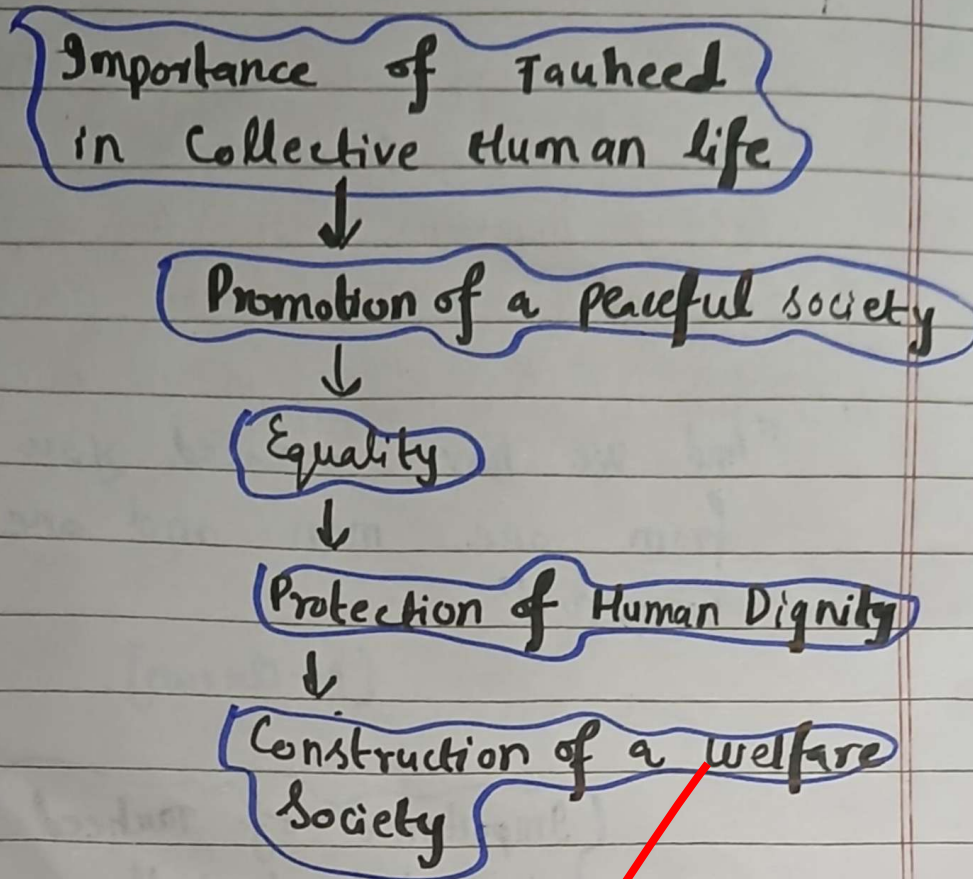 Importance of Tauheed
in Collective Human life
Promotion of a peaceful society
Equality
Protection of Human Dignity
Construction of a welfare
Society